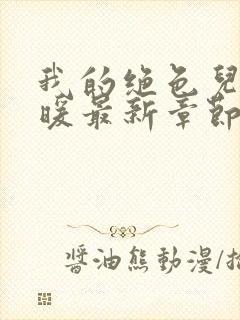 我的绝色兒
暖最新章節
醬油熊動漫/插